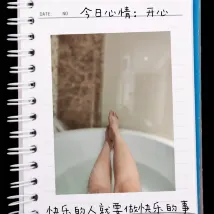 DATE: NO 今日心情：开心
快乐的人就要做快乐的事